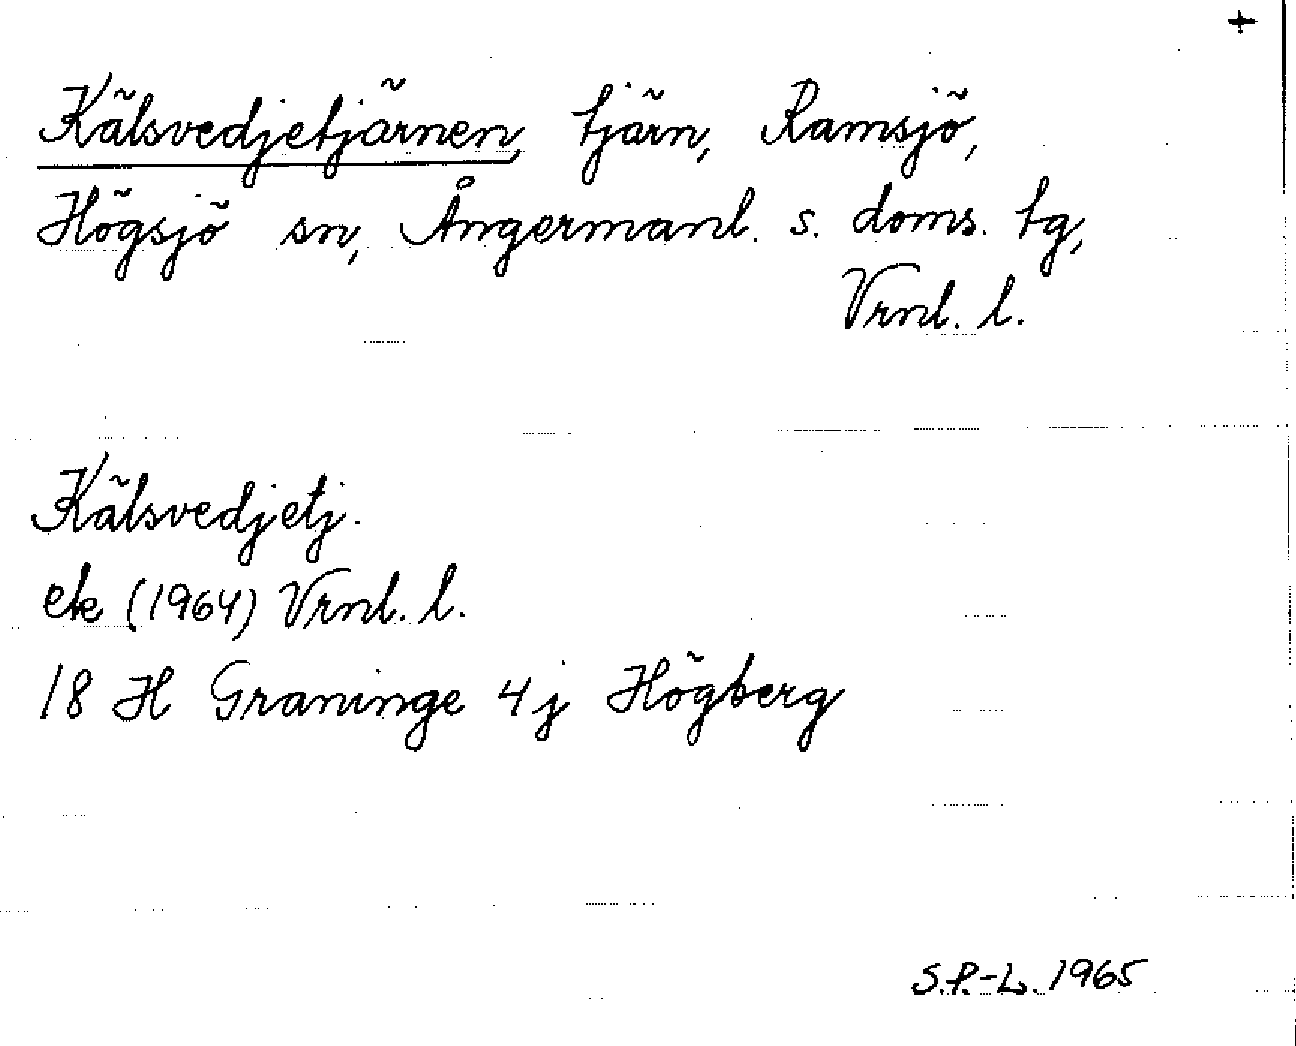 +
Kälsvedjetjärnen, tjärn, Ramsjö,
Högsjö sn, Ångermanl. s. doms. tg,
Vrnl. l.
Kälsvedjetj.
ek (1964) Vrnl. l.
18 H Graninge 4j Högberg
S.P.-L. 1965